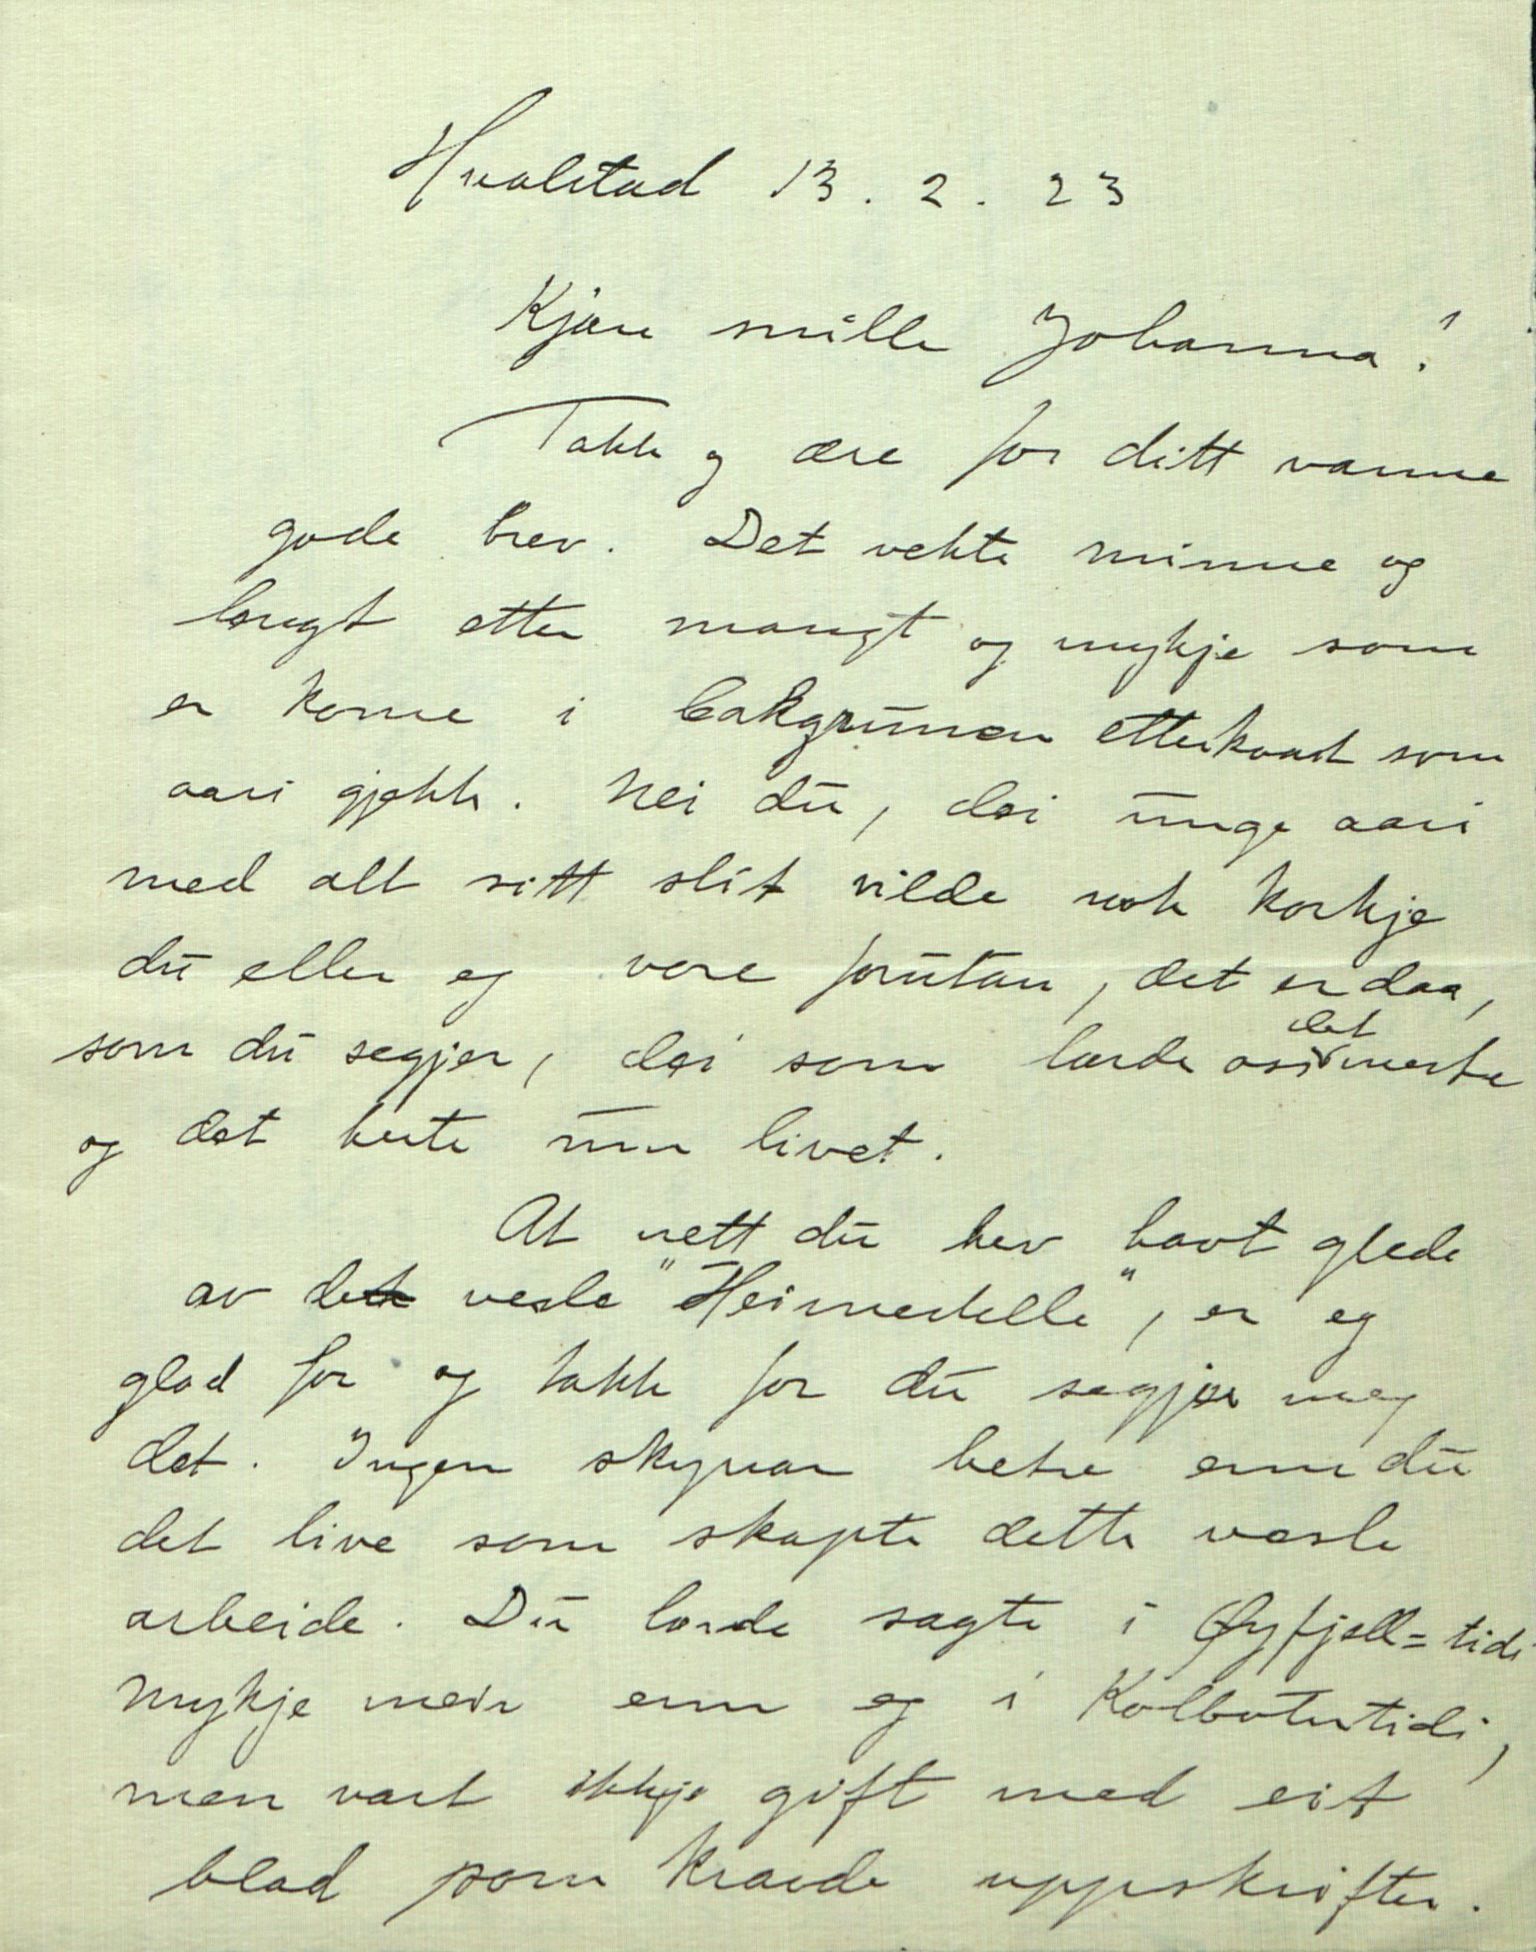 Hvalstad 13. 2. 23
Kjære snille Johanna!
Takk og ære for ditt varme
gode brev. Det vekte minne og
lengt etter mangt og mykje som
er kome i bakgrunnen etterkvart som
aari gjekk. Nei du, dei unge aari
med alt sitt slit vilde nok korkje
du eller eg vere forutan, det er daa,
som du segjer, dei som lærde oss det meste
og det beste um livet.
At nett du hev havt glede
av det vesle "Heimestelle", er eg
glad for og takk for du segjer meg
det. Ingen skynar betre enn du
det live som skapte dette vesle
arbeide. Du lærde sagte i Øyfjell-tidi
mykje meir enn eg i Kolbotntidi,
men vart ikkje gift med eit
blad som kravde uppskrifter.